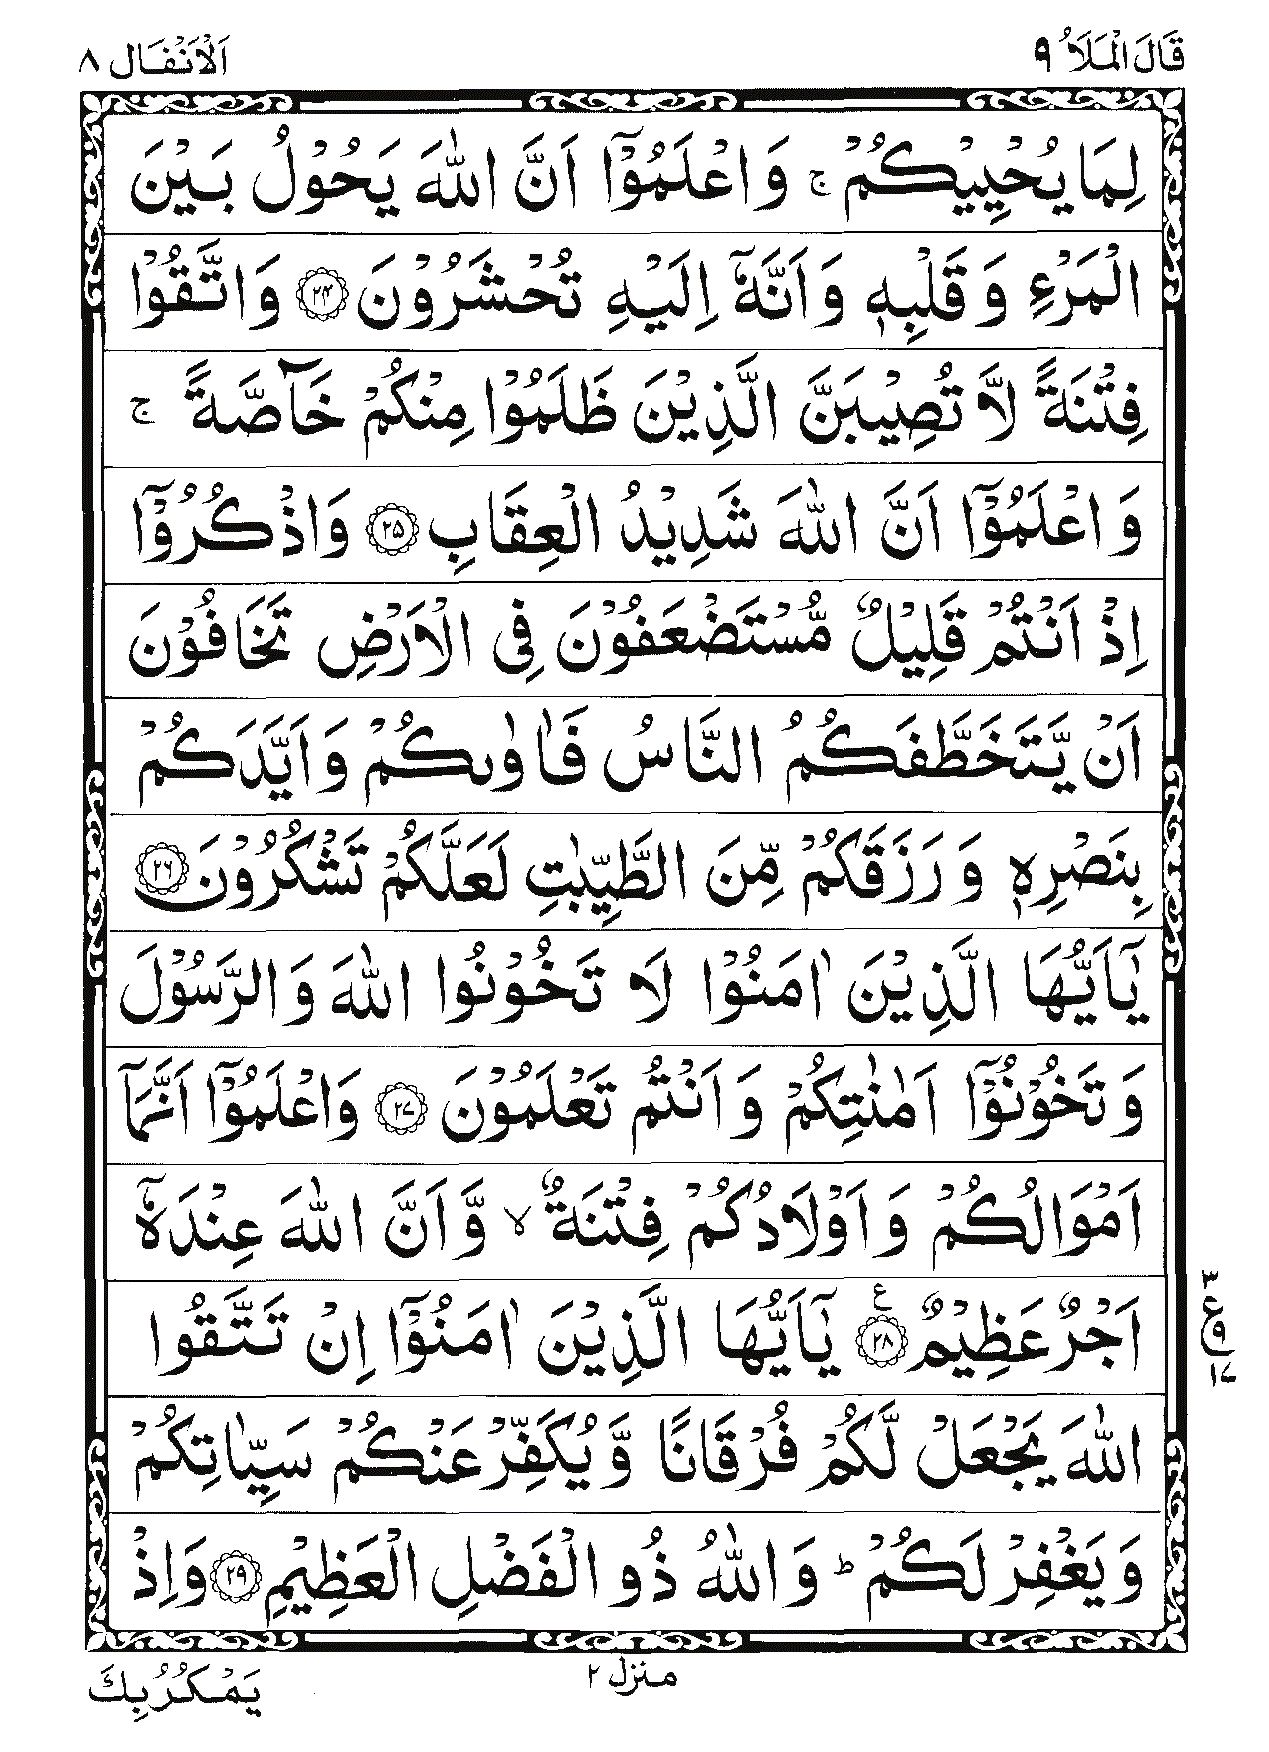 قَالَ الْمَلَاُ ۹
اَلْاَنْفَال ۸
لِمَا يُحْيِيْكُمْ ۚ وَاعْلَمُوْۤا اَنَّ اللّٰهَ يَحُوْلُ بَيْنَ
الْمَرْءِ وَقَلْبِهٖ وَاَنَّهٗۤ اِلَيْهِ تُحْشَرُوْنَ ﴿۲۴﴾ وَاتَّقُوْا
فِتْنَةً لَّا تُصِيْبَنَّ الَّذِيْنَ ظَلَمُوْا مِنْكُمْ خَآصَّةً ۚ
وَاعْلَمُوْۤا اَنَّ اللّٰهَ شَدِيْدُ الْعِقَابِ ﴿۲۵﴾ وَاذْكُرُوْۤا
اِذْ اَنْتُمْ قَلِيْلٌ مُّسْتَضْعَفُوْنَ فِى الْاَرْضِ تَخَافُوْنَ
اَنْ يَّتَخَطَّفَكُمُ النَّاسُ فَاٰوٰىكُمْ وَاَيَّدَكُمْ
بِنَصْرِهٖ وَرَزَقَكُمْ مِّنَ الطَّيِّبٰتِ لَعَلَّكُمْ تَشْكُرُوْنَ ﴿۲۶﴾
يٰۤاَيُّهَا الَّذِيْنَ اٰمَنُوْا لَا تَخُوْنُوا اللّٰهَ وَالرَّسُوْلَ
وَتَخُوْنُوْۤا اَمٰنٰتِكُمْ وَاَنْتُمْ تَعْلَمُوْنَ ﴿۲۷﴾ وَاعْلَمُوْۤا اَنَّمَاۤ
اَمْوَالُكُمْ وَاَوْلَادُكُمْ فِتْنَةٌ ۙ وَّاَنَّ اللّٰهَ عِنْدَهٗۤ
اَجْرٌ عَظِيْمٌ ﴿۲۸﴾ ع يٰۤاَيُّهَا الَّذِيْنَ اٰمَنُوْۤا اِنْ تَتَّقُوا
۳ ع ۹ ۱۷
اللّٰهَ يَجْعَلْ لَّكُمْ فُرْقَانًا وَّيُكَفِّرْ عَنْكُمْ سَيِّاٰتِكُمْ
وَيَغْفِرْ لَكُمْ ؕ وَاللّٰهُ ذُو الْفَضْلِ الْعَظِيْمِ ﴿۲۹﴾ وَاِذْ
منزل ۲
يَمْكُرُ بِكَ